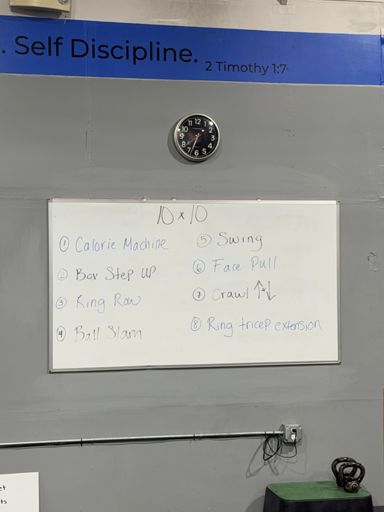 . Self Discipline.
2 Timothy 1:7
12
1
2
3
4
5
6
7
8
9
10
11
10 x 10
① Calorie Machine
② Box Step UP
③ Ring Row
④ Ball Slam
⑤ Swing
⑥ Face Pull
⑦ Crawl ↑↓
⑧ Ring tricep extension